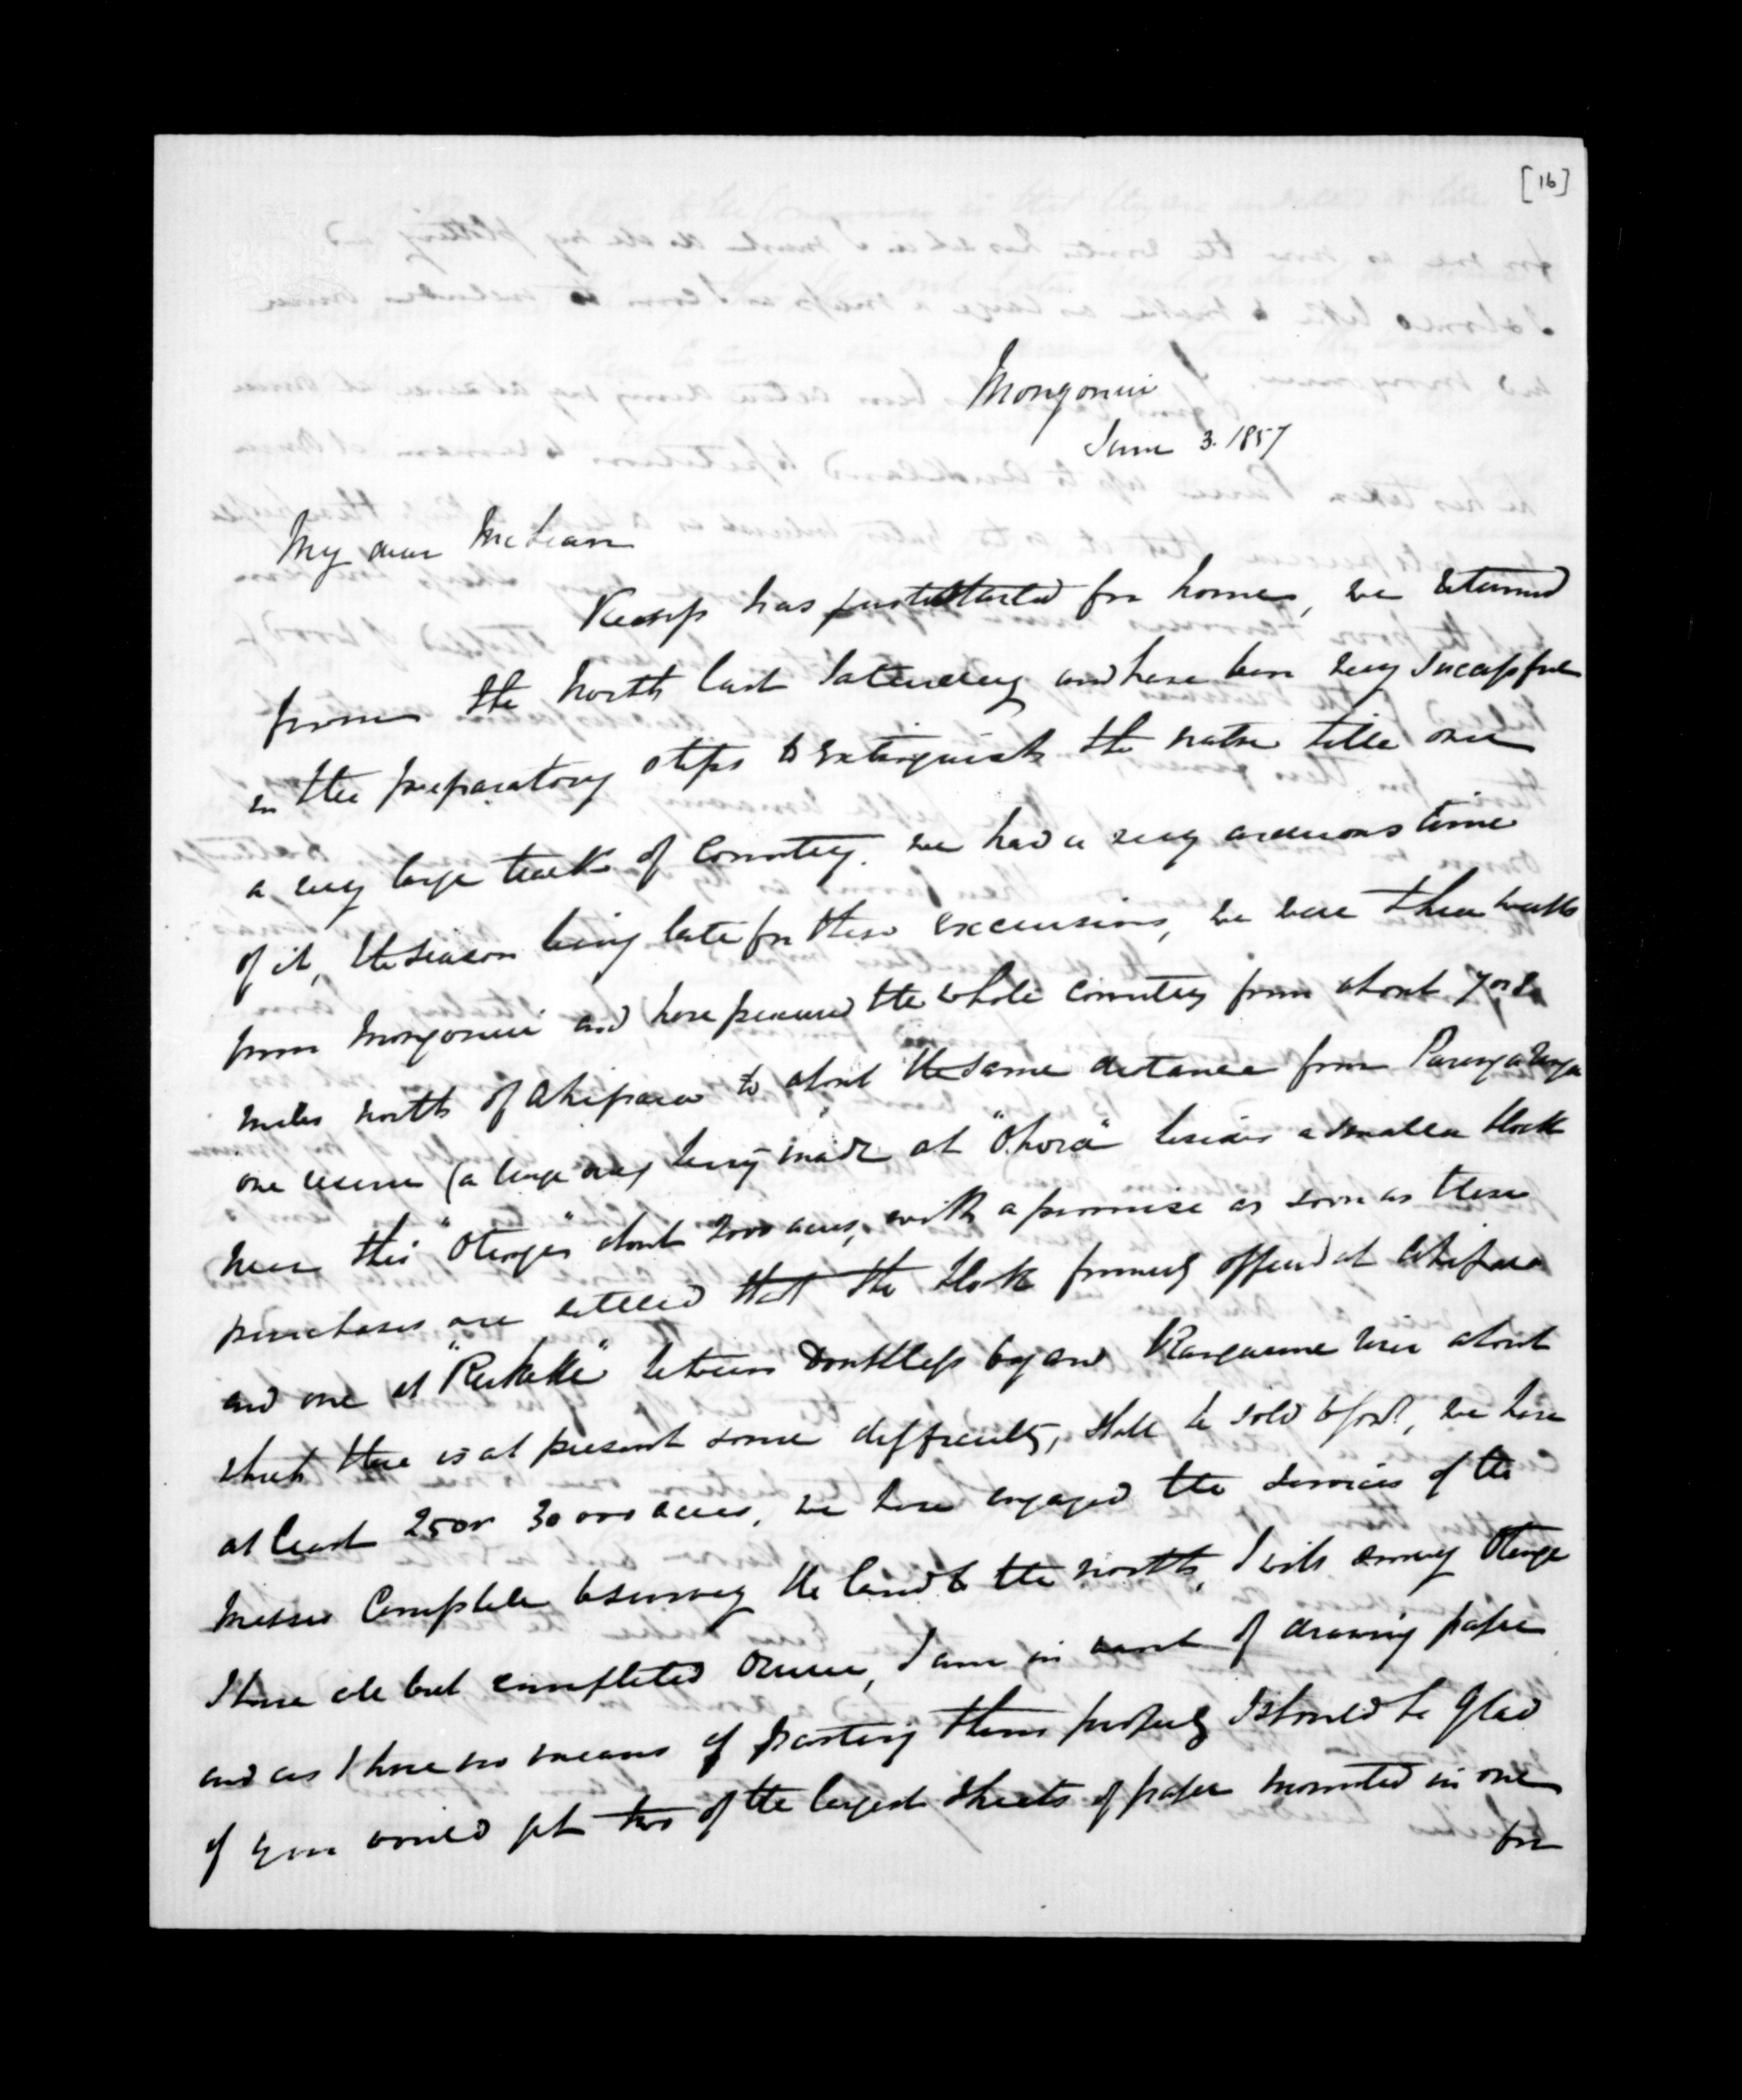 [16]
Mongonui
June 3. 1857
My dear McLean
Kemp has just started for home, we returned
from the North last Saturday and have been very successful
in the preparatory steps to extinguish the native title over
a very large track of Country. we had a very arduous time
of it, the season being late for these excursions, we were three weeks
from Mongonui and have the whole country from about 7 or 8
miles north of Ahipara to about the same distance from Parengarenga
one reserve (a large one) being made at "Ohora" besides a smaller block
near this "Otengi" about 2000 acres, with a promise as soon as these
purchases are settled that the block formerly offered at Ahipara
and one at between Doubtless bay and Rangaunu river about
which there is at present some difficulty, shall be sold to Govt, we have
at least 25 or 30 000 acres, we have engaged the services of the
Messrs Campbell to survey the land to the north, I will survey Otengi
I have all but completed Oruru, I am in want of drawing paper
and as I have no means of pasting them properly I should be glad
if you would get two of the largest sheets of paper mounted in one
for